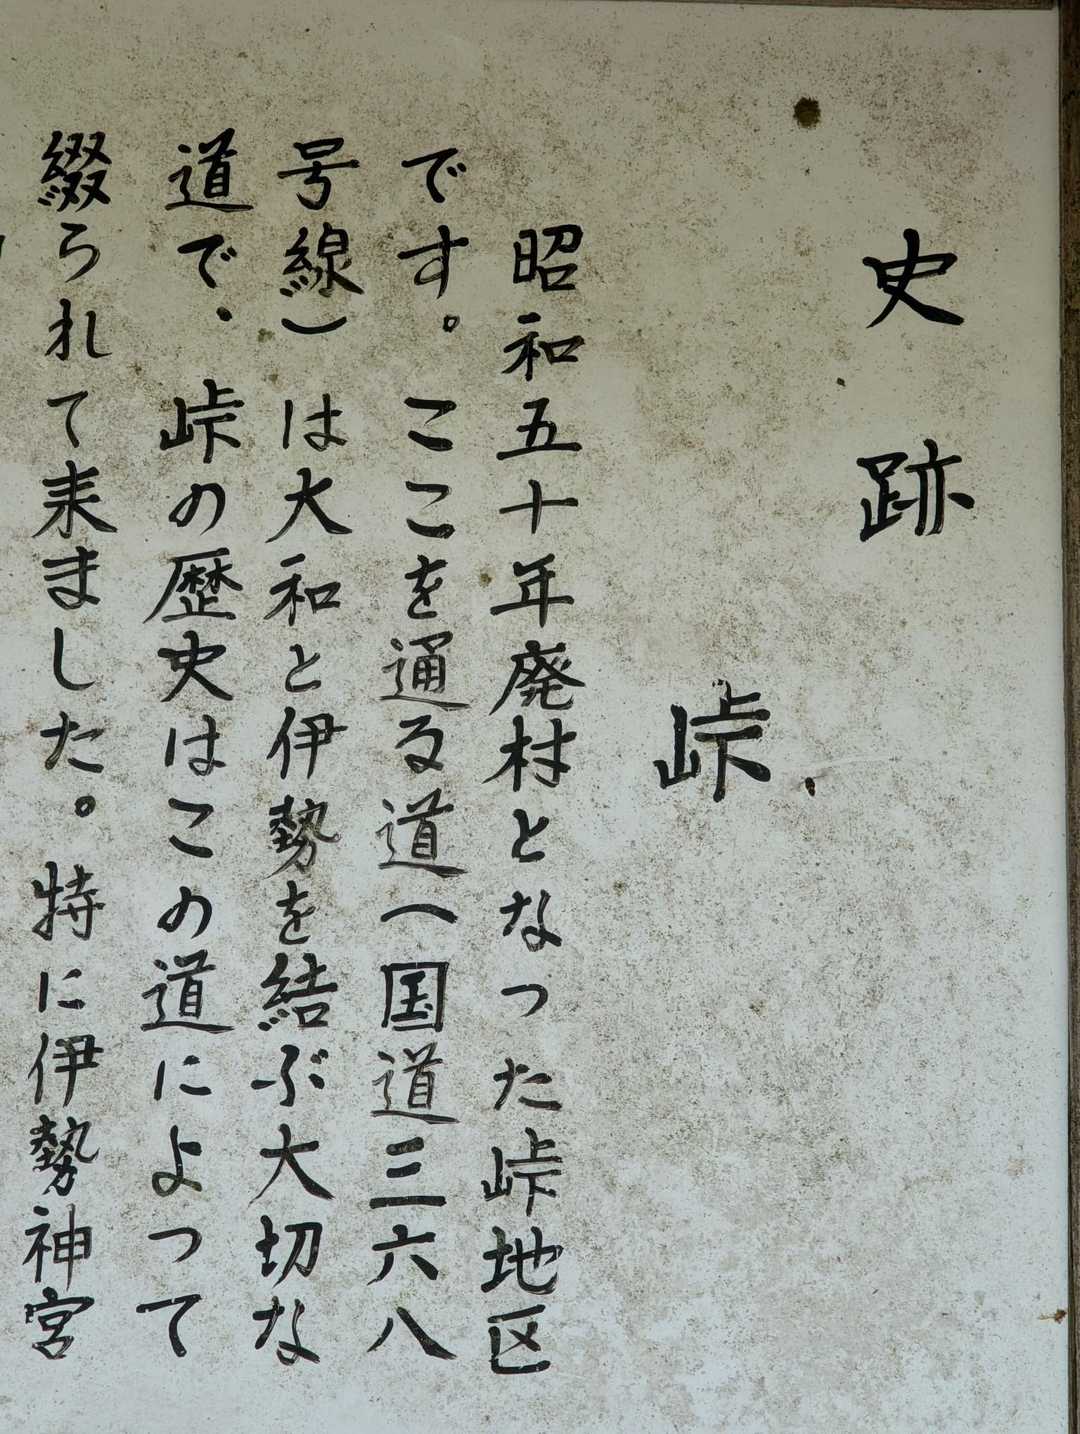 史跡
峠
昭和五十年廃村となった峠地区
です。ここを通る道(国道三六八
号線)は大和と伊勢を結ぶ大切な
道で、峠の歴史はこの道によって
綴られて来ました。特に伊勢神宮